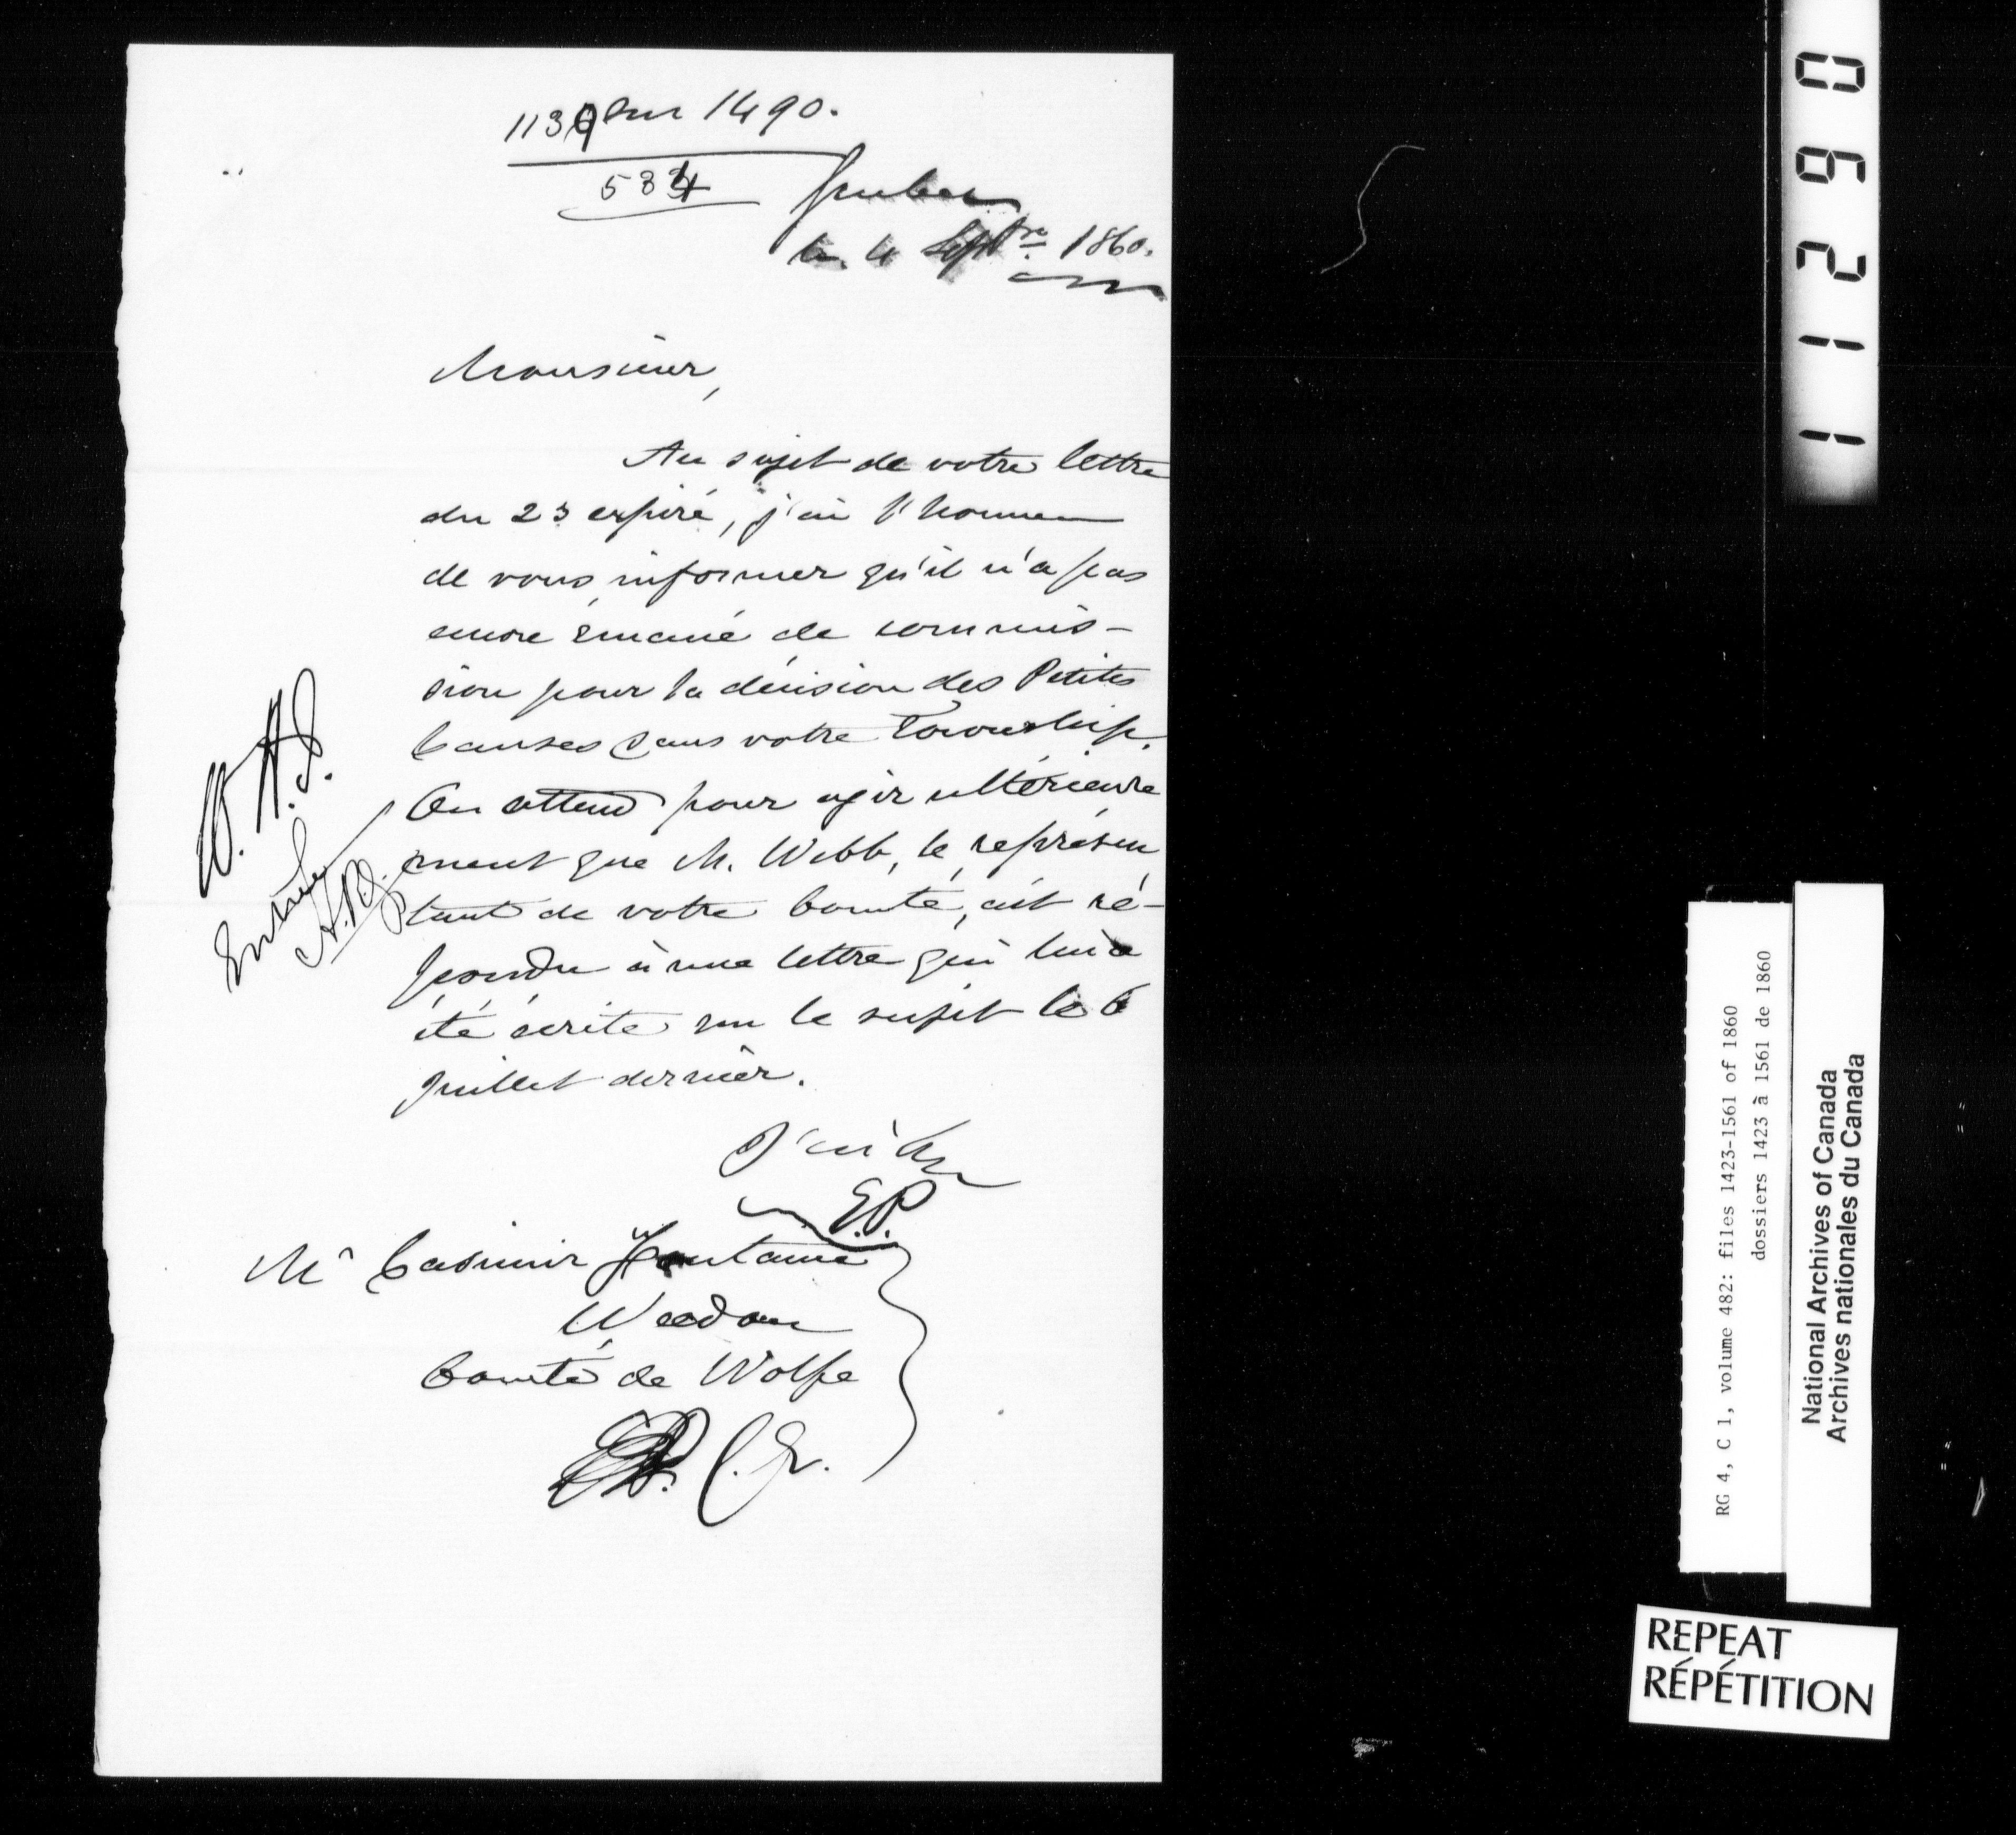 1139 sur 1490.
534
Quebec
le 4 Septre 1860.
Monsieur,
Au sujet de votre lettre
du 23 expiré, j'ai l'honneur
de vous informer qu'il n'a pas
encore émané de commis-
sion pour la décision des Petites
Causes dans votre Township.
On attend pour agir ultérieure
ment que M. Webb, le représen
tant de votre Comté, ait ré-
pondu à une lettre qui lui a
été écrite sur le sujet le 6
Juillet dernier.
J'ai &c
E.P.
Mr Casimir Fontaine
Weedon
Comté de Wolfe
C. E.
W. H. J.
Entered
REPEAT
RÉPÉTITION
RG 4, C 1, volume 482: files 1423-1561 of 1860
dossiers 1423 à 1561 de 1860
National Archives of Canada
Archives nationales du Canada
11290